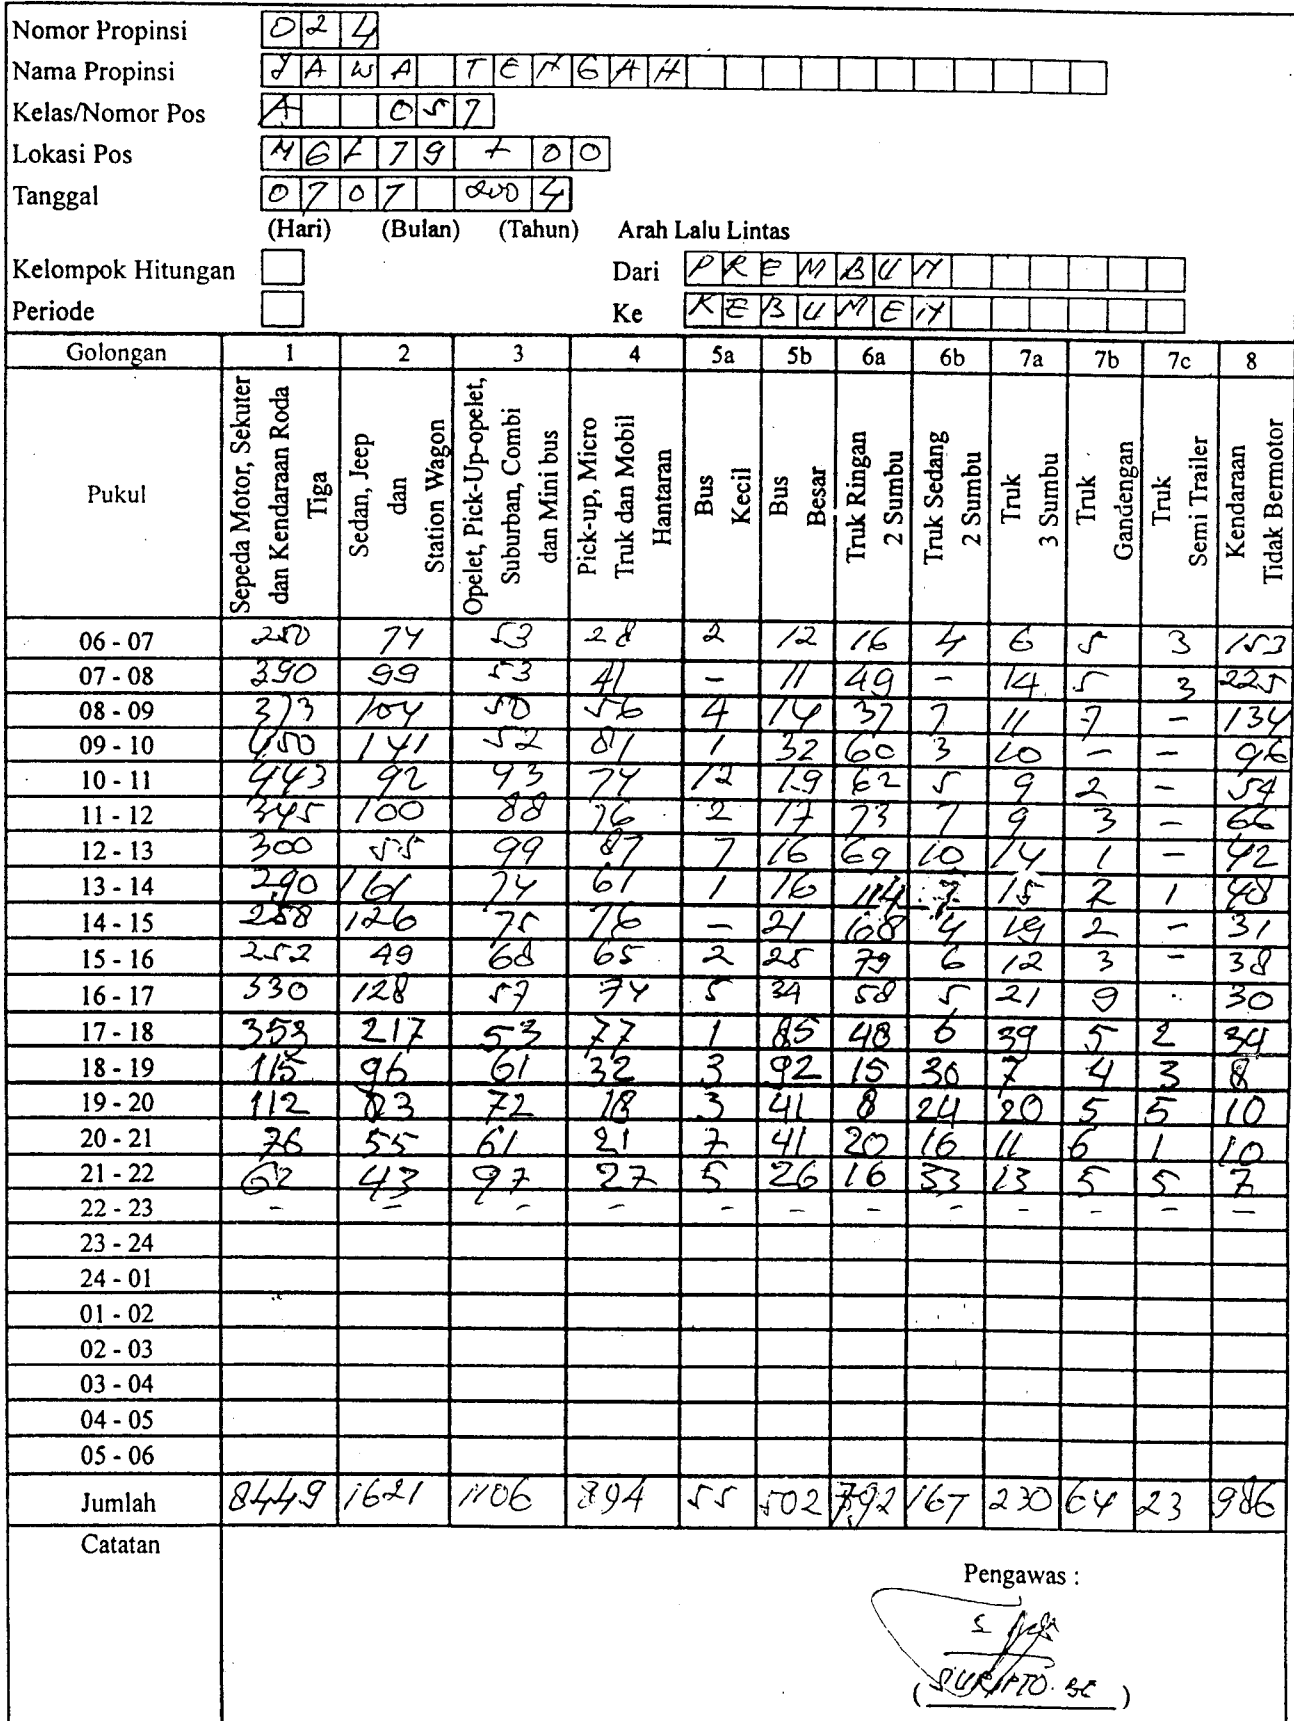 Nomor Propinsi 024
Nama Propinsi JAWA TENGAH
Kelas/Nomor Pos A 057
Lokasi Pos 79 + 00
Tanggal 07 07 2004
(Hari) (Bulan) (Tahun) Arah Lalu Lintas
Kelompok Hitungan Dari PREMBUN
Periode Ke KEBUMEN
Golongan 1 2 3 4 5a 5b 6a 6b 7a 7b 7c 8
Pukul
Sepeda Motor, Sekuter
dan Kendaraan Roda
Tiga
Sedan, Jeep
dan
Station Wagon
Opelet, Pick-Up-opelet,
Suburban, Combi
dan Mini bus
Pick-up, Micro
Truk dan Mobil
Hantaran
Bus
Kecil
Bus
Besar
Truk Ringan
2 Sumbu
Truk Sedang
2 Sumbu
Truk
3 Sumbu
Truk
Gandengan
Truk
Semi Trailer
Kendaraan
Tidak Bermotor
06 - 07 250 74 53 28 2 12 16 4 6 5 3 153
07 - 08 390 99 53 41 - 11 49 - 14 5 3 225
08 - 09 373 104 50 56 4 14 37 7 11 7 - 134
09 - 10 450 141 52 81 1 32 60 3 10 - - 96
10 - 11 443 92 93 74 12 19 62 5 9 2 - 54
11 - 12 345 100 88 76 2 17 73 7 9 3 - 66
12 - 13 300 55 99 87 7 16 69 10 14 1 - 42
13 - 14 290 161 74 61 1 16 114 7 15 2 1 48
14 - 15 258 126 75 76 - 21 68 4 19 2 - 31
15 - 16 252 49 68 65 2 25 79 6 12 3 - 38
16 - 17 330 128 57 74 5 34 58 5 21 9 30
17 - 18 353 217 53 77 1 85 48 6 39 5 2 34
18 - 19 115 96 61 32 3 92 15 30 7 4 3 8
19 - 20 112 83 72 18 3 41 8 24 20 5 5 10
20 - 21 76 55 61 21 7 41 20 16 11 6 1 10
21 - 22 62 43 97 27 5 26 16 33 13 5 5 7
22 - 23 - - - - - - - - - - - -
23 - 24
24 - 01
01 - 02
02 - 03
03 - 04
04 - 05
05 - 06
Jumlah 8449 1621 1106 894 55 502 792 167 230 64 23 986
Catatan
Pengawas :
( SURIPTO. BE )